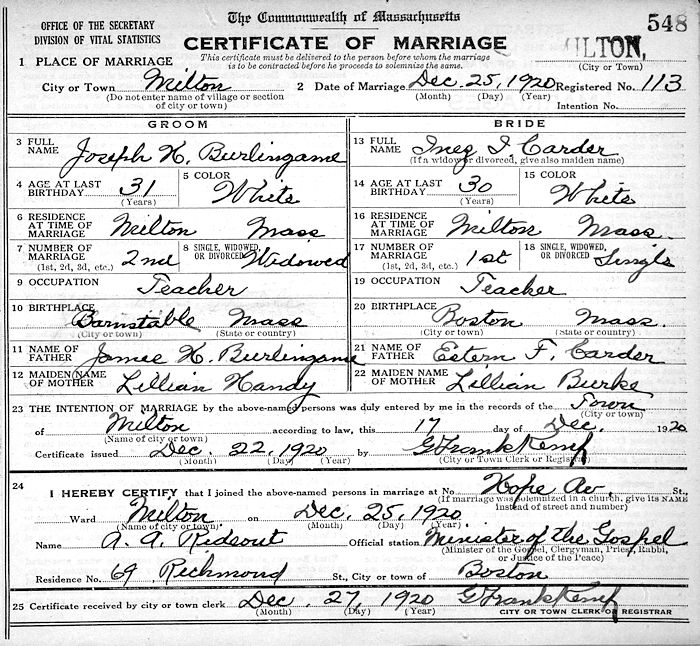 The Commonwealth of Massachusetts
548
OFFICE OF THE SECRETARY
DIVISION OF VITAL STATISTICS
CERTIFICATE OF MARRIAGE
MILTON,
(City or Town)
This certificate must be delivered to the person before whom the marriage
is to be contracted before he proceeds to solemnize the same.
1 PLACE OF MARRIAGE
City or Town Milton 2 Date of Marriage Dec. 25, 1920 Registered No. 113
(Do not enter name of village or section
of city or town)
(Month) (Day) (Year)
Intention No.
GROOM
3 FULL NAME Joseph H. Burlingame
4 AGE AT LAST BIRTHDAY 31 (Years) 5 COLOR White
6 RESIDENCE AT TIME OF MARRIAGE Milton Mass
7 NUMBER OF MARRIAGE (1st, 2d, 3d, etc.) 2nd 8 SINGLE, WIDOWED OR DIVORCED Widowed
9 OCCUPATION Teacher
10 BIRTHPLACE Barnstable Mass
(City or town) (State or country)
11 NAME OF FATHER James H. Burlingame
12 MAIDEN NAME OF MOTHER Lillian Handy
BRIDE
13 FULL NAME Inez I Carder
(If a widow or divorced, give also maiden name)
14 AGE AT LAST BIRTHDAY 30 (Years) 15 COLOR White
16 RESIDENCE AT TIME OF MARRIAGE Milton Mass.
17 NUMBER OF MARRIAGE (1st, 2d, 3d, etc.) 1st 18 SINGLE, WIDOWED, OR DIVORCED Single
19 OCCUPATION Teacher
20 BIRTHPLACE Boston Mass.
(City or town) (State or country)
21 NAME OF FATHER Estern F. Carder
22 MAIDEN NAME OF MOTHER Lillian Burke
23 THE INTENTION OF MARRIAGE by the above-named persons was duly entered by me in the records of the Town
(City or town)
of Milton according to law, this 17 day of Dec. 1920
(Name of city or town)
Certificate issued Dec. 22, 1920 by G Frank Kemp
(Month) (Day) (Year) (City or Town Clerk or Registrar)
24
I HEREBY CERTIFY that I joined the above-named persons in marriage at No. Hope Av St.,
(If marriage was solemnized in a church, give its NAME
instead of street and number)
Ward Milton on Dec. 25, 1920
(Name of city or town) (Month) (Day) (Year)
Name A. A. Rideout Official station Minister of the Gospel
(Minister of the Gospel, Clergyman, Priest, Rabbi,
or Justice of the Peace)
Residence No. 69, Richmond St., City or town of Boston
25 Certificate received by city or town clerk Dec. 27, 1920 G Frank Kemp
(Month) (Day) (Year) CITY OR TOWN CLERK OR REGISTRAR